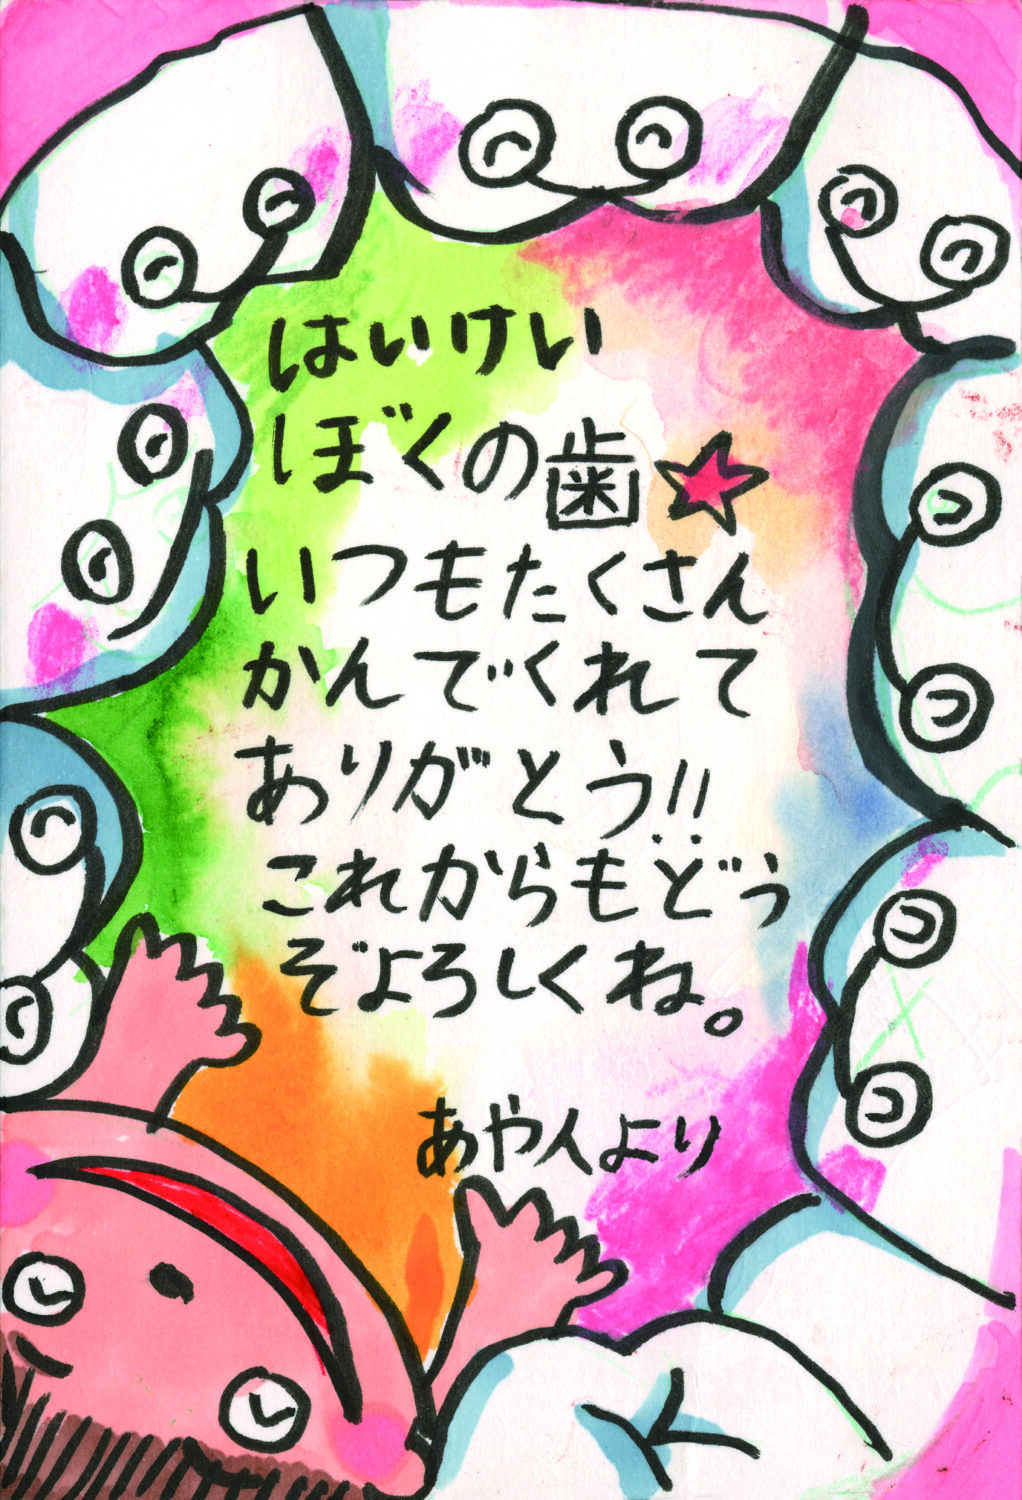 はいけい
ぼくの歯★
いつもたくさん
かんでくれて
ありがとう!!
これからもどう
ぞよろしくね。
あや人より